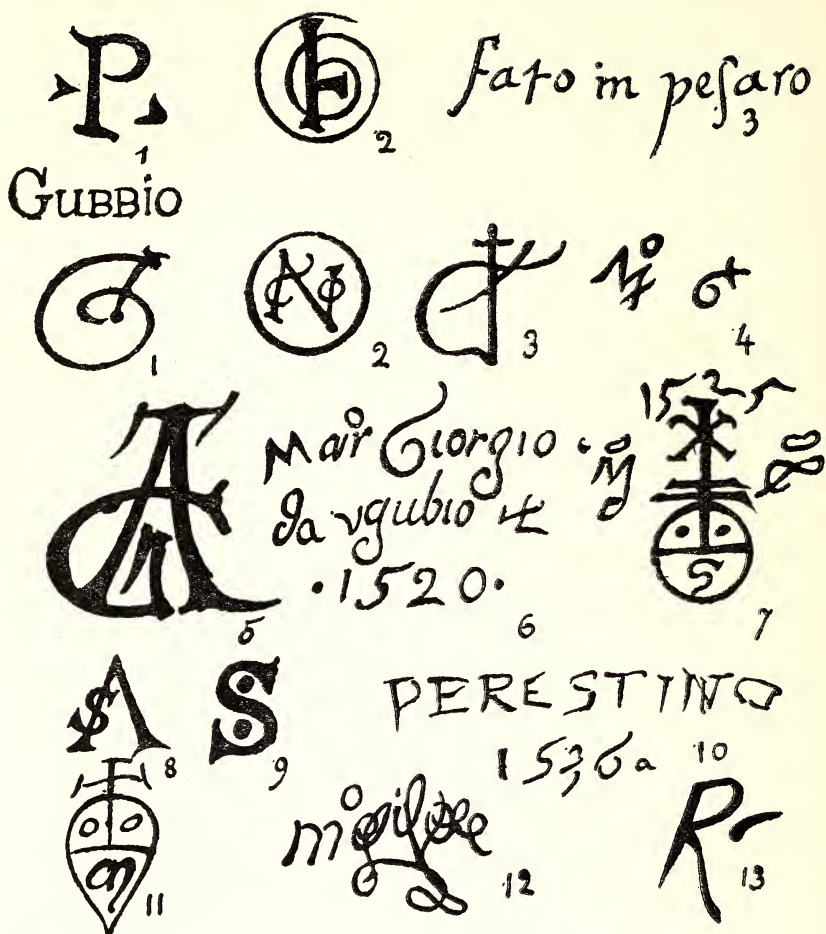 P
1
2
fato in pesaro
3
GUBBIO
1
N
2
3
M° G
4
5
Maᵒr Giorgio
da vgubio
·1520·
6
1525
S
7
8
S
9
PERESTINO
1536a
10
m
11
12
R
13